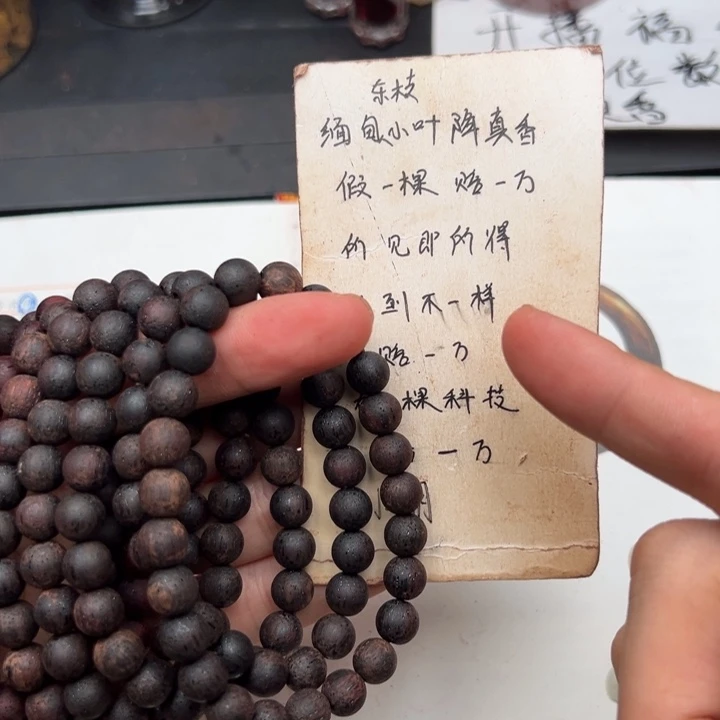 东枝
缅甸小叶降真香
假一棵赔一万
所见即所得
到不一样
赔一万
棵科技
一万
开播福
位数